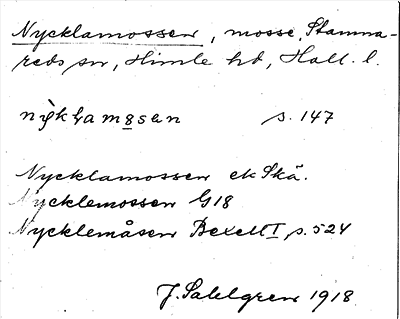 Nycklamossen, mosse, Stamna-
reds sn, Himle hd, Hall. l.
nỳklamɷsən s. 147
Nycklamossen ek Skä.
Nycklemossen G18
Nycklemåsen Bexell I, s. 524
J. Sahlgren 1918